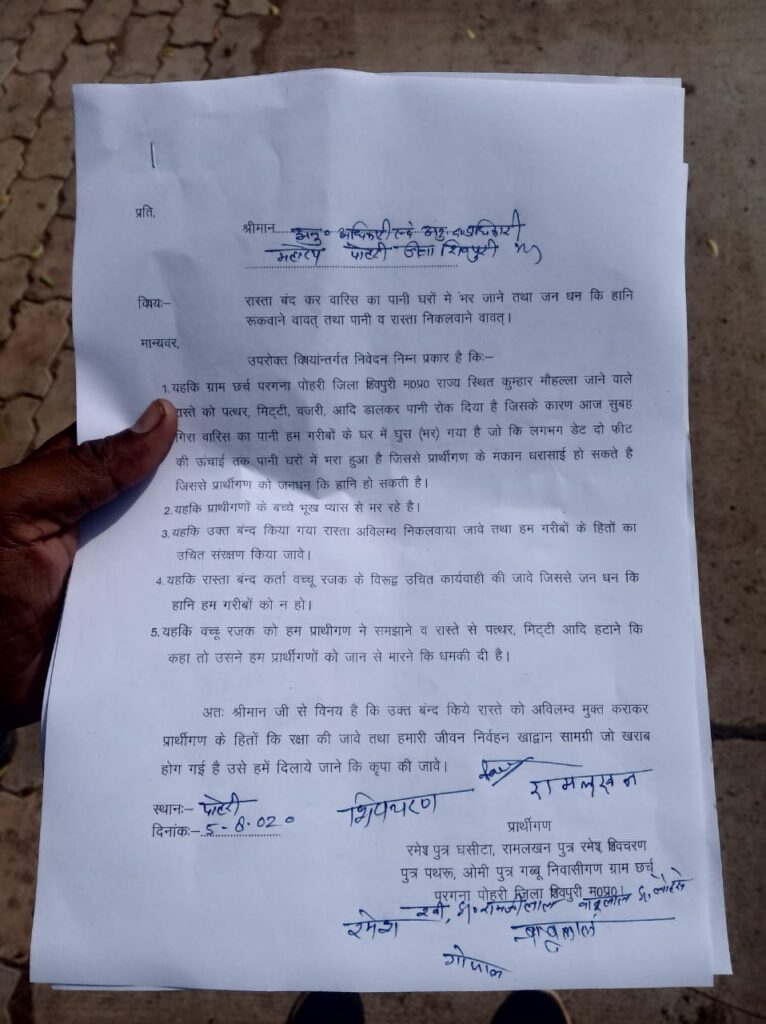 प्रति,
श्रीमान..... अनु० अधिकारी एवं अनु. दण्डाधिकारी
महोदय पोहरी जिला शिवपुरी
विषयः– रास्ता बंद कर वारिस का पानी घरों मे भर जाने तथा जन धन कि हानि
रूकवाने वावत् तथा पानी व रास्ता निकलवाने वावत्।
मान्यवर,
उपरोक्त विषयांन्तर्गत निवेदन निम्न प्रकार है किः–
1. यहकि ग्राम छर्च परगना पोहरी जिला शिवपुरी म०प्र० राज्य स्थित कुम्हार मौहल्ला जाने वाले
रास्ते को पत्थर, मिट्टी, बजरी, आदि डालकर पानी रोक दिया है जिसके कारण आज सुबह
गिरा वारिस का पानी हम गरीबों के घर में घुस (भर) गया है जो कि लगभग डेट दो फीट
की ऊंचाई तक पानी घरों में भरा हुआ है जिससे प्रार्थीगण के मकान धरासाई हो सकते है
जिससे प्रार्थीगण को जनधन कि हानि हो सकती है।
2. यहकि प्रार्थीगणों के बच्चे भूख प्यास से भर रहे है।
3. यहकि उक्त बंन्द किया गया रास्ता अविलम्व निकलवाया जावे तथा हम गरीबों के हितों का
उचित संरक्षण किया जावे।
4. यहकि रास्ता बंन्द कर्ता वच्चू रजक के विरूद्व उचित कार्यवाही की जावे जिससे जन धन कि
हानि हम गरीबों को न हो।
5. यहकि वच्चू रजक को हम प्राथीगण ने समझाने व रास्ते से पत्थर, मिट्टी आदि हटाने कि
कहा तो उसने हम प्रार्थीगणों को जान से मारने कि धमकी दी है।
अतः श्रीमान जी से विनय है कि उक्त बंन्द किये रास्ते को अविलम्व मुक्त कराकर
प्रार्थीगण के हितों कि रक्षा की जावे तथा हमारी जीवन निर्वहन खाद्वान सामग्री जो खराब
होग गई है उसे हमें दिलाये जाने कि कृपा की जावे।
रामलखन
स्थानः– पोहरी शिवचरण
दिनांकः– 5-8-020
प्रार्थीगण
रमेश पुत्र घसीटा, रामलखन पुत्र रमेश शिवचरण
पुत्र पथरू, ओमी पुत्र गब्बू निवासीगण ग्राम छर्च
परगना पोहरी जिला शिवपुरी म०प्र०।
रवी, S/o रामजीलाल बाबूलाल S/o
रमेश बाबूलाल
गोपाल